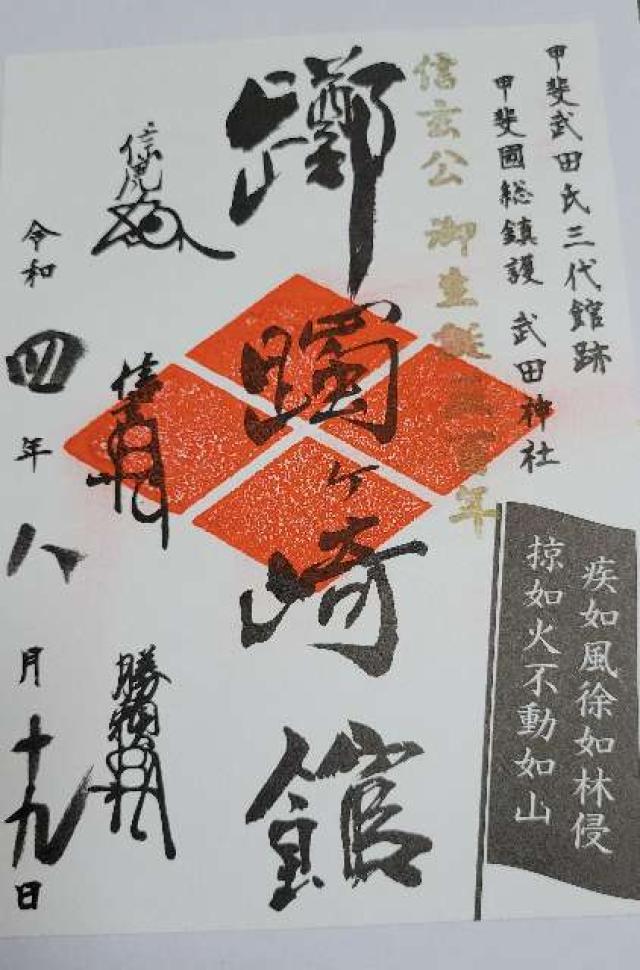 甲斐武田氏三代館跡
甲斐國総鎮護 武田神社
信玄公 御生誕五百年
躑躅ヶ崎館
信虎
信玄
勝頼
令和四年八月十九日
疾如風徐如林侵
掠如火不動如山